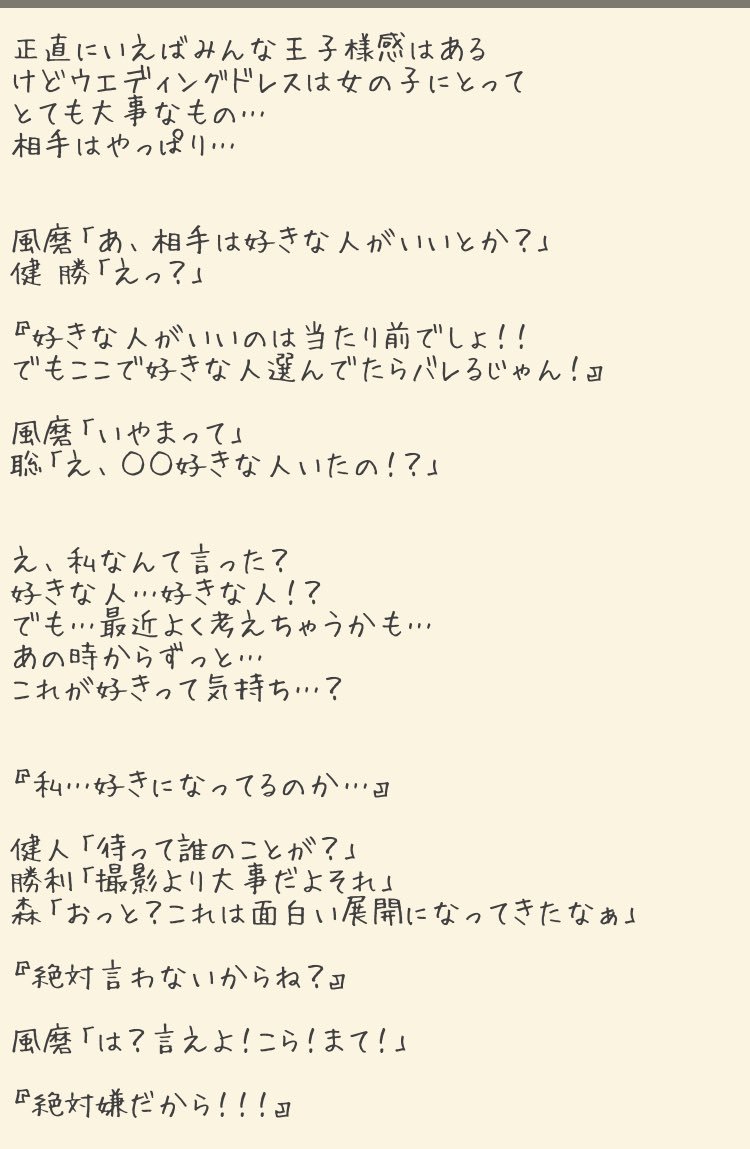 正直にいえばみんな王子様感はある
けどウエディングドレスは女の子にとって
とても大事なもの…
相手はやっぱり…
風磨「あ、相手は好きな人がいいとか？」
健 勝「えっ？」
『好きな人がいいのは当たり前でしょ！！
でもここで好きな人選んでたらバレるじゃん！』
風磨「いやまって」
聡「え、〇〇好きな人いたの！？」
え、私なんて言った？
好きな人…好きな人！？
でも…最近よく考えちゃうかも…
あの時からずっと…
これが好きって気持ち…？
『私…好きになってるのか…』
健人「待って誰のことが？」
勝利「撮影より大事だよそれ」
森「おっと？これは面白い展開になってきたなぁ」
『絶対言わないからね？』
風磨「は？言えよ！こら！まて！」
『絶対嫌だから！！！』